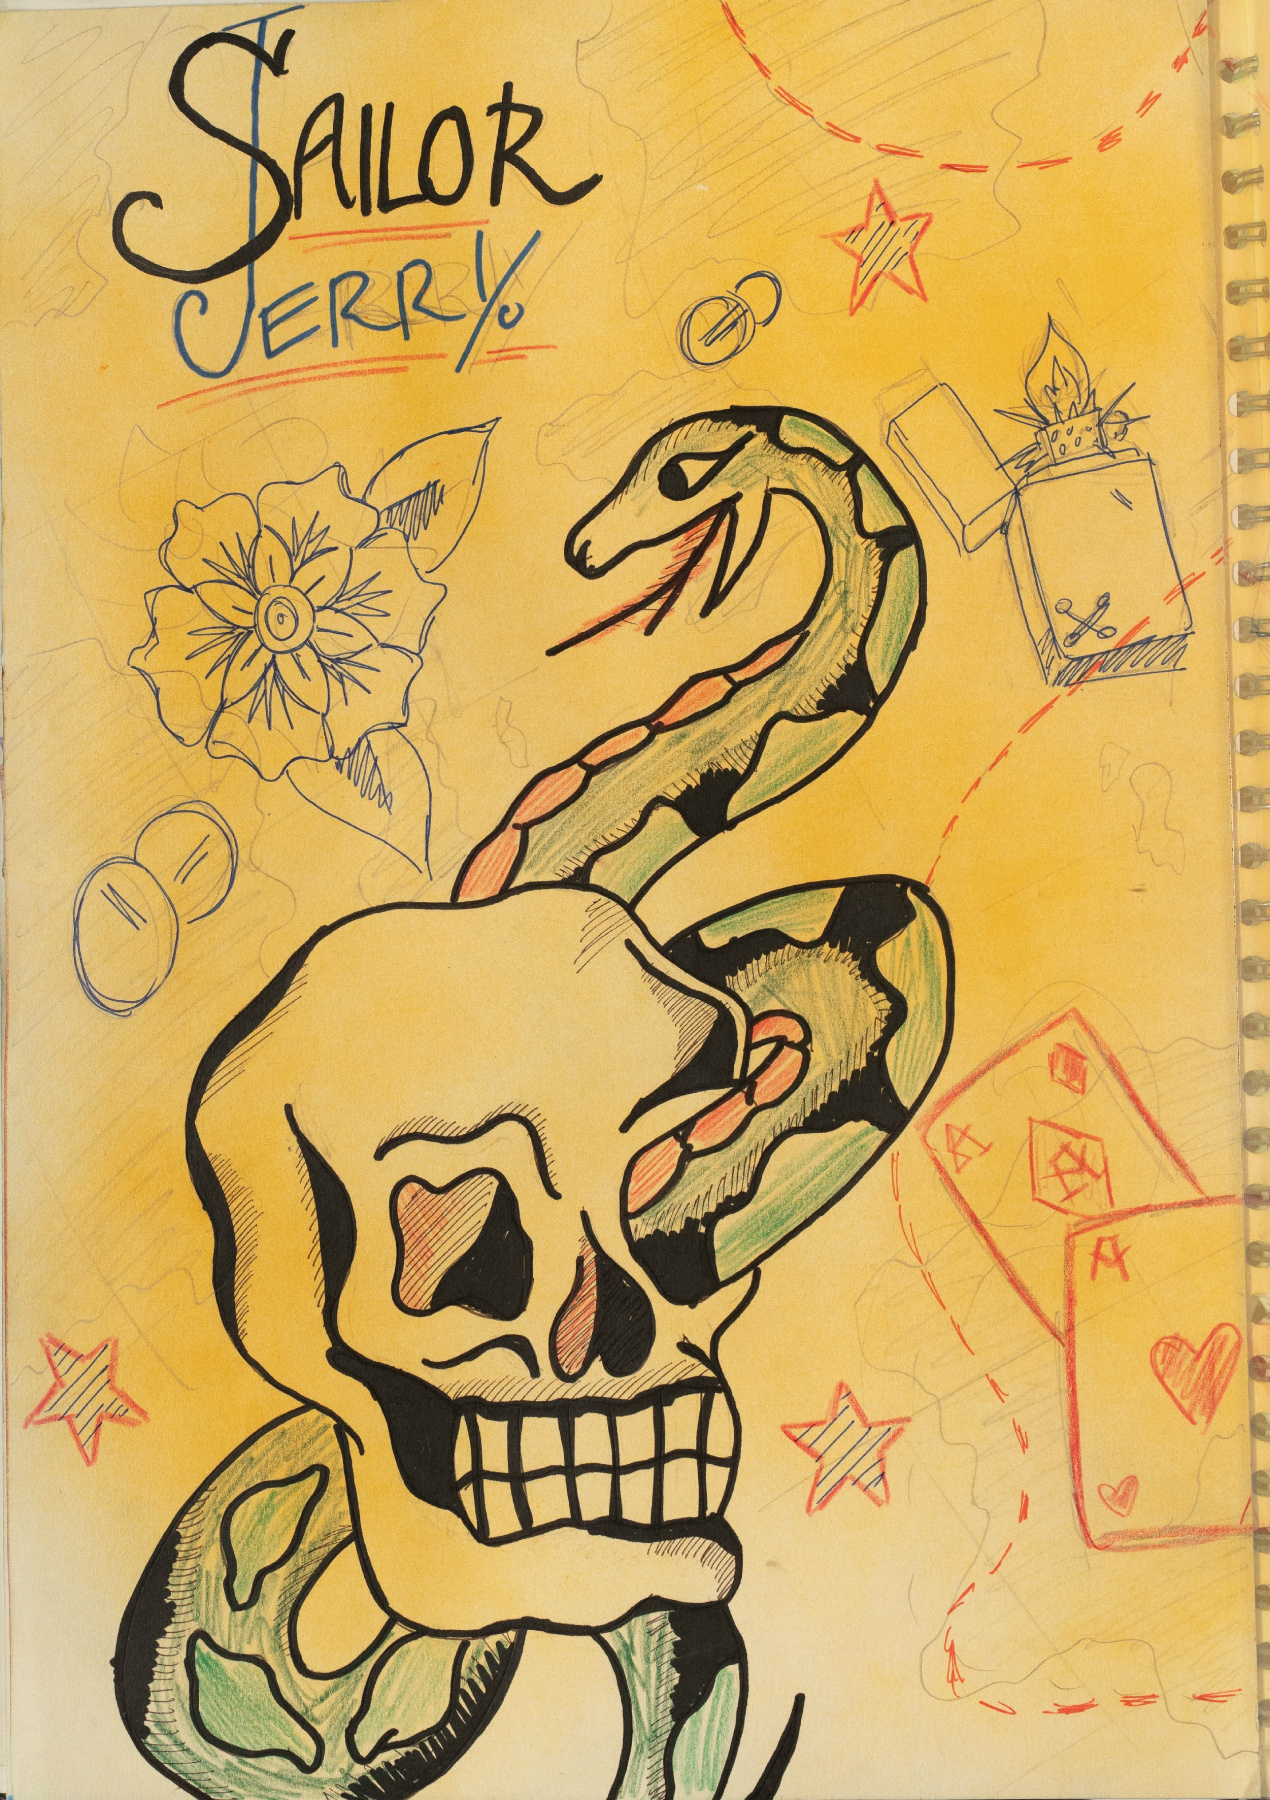 SAILOR
JERRY.
A
A
A